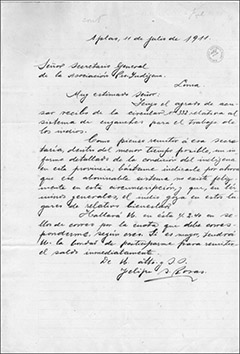 Aplao, 11 de julio de 1911.
Señor Secretario General
de la Asociación Pro-Indígena
Lima
Muy estimado señor:
Tengo el agrado de acusar
recibo de la circular Nº 332 relativa al
sistema de enganches para el trabajo de
los indios.
Como pienso remitir á esa secre-
taría, dentro del menor tiempo posible, un in-
forme detallado de la condición del indígena
en esta provincia, limítome indicarle por ahora
que ese abominable sistema no existe feliz-
mente en esta circunscripción; y que, en tér-
minos generales, el indio goza en estos lu-
gares de relativo bienestar.
Hallará U. en ésta
de correos por la cuota que debo corres-
ponderme, según creo. Si es mayor, tendrá
U. la bondad de participarme para remitirle
el saldo inmediatamente.
De U. atto. S. S.
Felipe S.